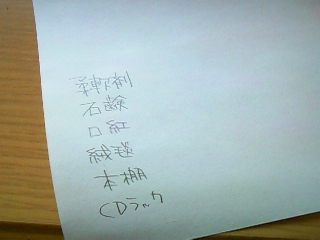 柔軟剤
石鹸
口紅
絨毯
本棚
CDラック